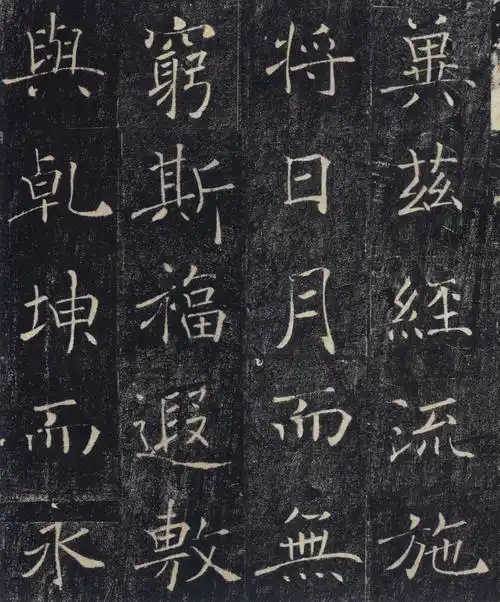 兾茲經流施
将日月而無
窮斯福遐敷
與乹坤而永